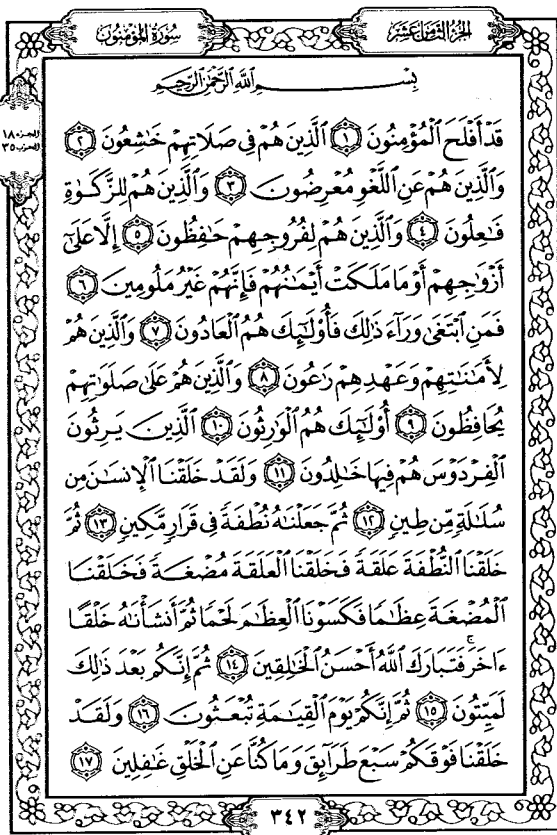 الجزء الثامن عشر
سورة المؤمنون
الجزء ١٨
الحزب ٣٥
بِسْمِ اللَّهِ الرَّحْمَٰنِ الرَّحِيمِ
قَدْ أَفْلَحَ ٱلْمُؤْمِنُونَ ١ ٱلَّذِينَ هُمْ فِى صَلَاتِهِمْ خَٰشِعُونَ ٢
وَٱلَّذِينَ هُمْ عَنِ ٱللَّغْوِ مُعْرِضُونَ ٣ وَٱلَّذِينَ هُمْ لِلزَّكَوٰةِ
فَٰعِلُونَ ٤ وَٱلَّذِينَ هُمْ لِفُرُوجِهِمْ حَٰفِظُونَ ٥ إِلَّا عَلَىٰٓ
أَزْوَٰجِهِمْ أَوْ مَا مَلَكَتْ أَيْمَٰنُهُمْ فَإِنَّهُمْ غَيْرُ مَلُومِينَ ٦
فَمَنِ ٱبْتَغَىٰ وَرَآءَ ذَٰلِكَ فَأُو۟لَٰٓئِكَ هُمُ ٱلْعَادُونَ ٧ وَٱلَّذِينَ هُمْ
لِأَمَٰنَٰتِهِمْ وَعَهْدِهِمْ رَٰعُونَ ٨ وَٱلَّذِينَ هُمْ عَلَىٰ صَلَوَٰتِهِمْ
يُحَافِظُونَ ٩ أُو۟لَٰٓئِكَ هُمُ ٱلْوَٰرِثُونَ ١٠ ٱلَّذِينَ يَرِثُونَ
ٱلْفِرْدَوْسَ هُمْ فِيهَا خَٰلِدُونَ ١١ وَلَقَدْ خَلَقْنَا ٱلْإِنسَٰنَ مِن
سُلَٰلَةٍ مِّن طِينٍ ١٢ ثُمَّ جَعَلْنَٰهُ نُطْفَةً فِى قَرَارٍ مَّكِينٍ ١٣ ثُمَّ
خَلَقْنَا ٱلنُّطْفَةَ عَلَقَةً فَخَلَقْنَا ٱلْعَلَقَةَ مُضْغَةً فَخَلَقْنَا
ٱلْمُضْغَةَ عِظَٰمًا فَكَسَوْنَا ٱلْعِظَٰمَ لَحْمًا ثُمَّ أَنشَأْنَٰهُ خَلْقًا
ءَاخَرَ ۚ فَتَبَارَكَ ٱللَّهُ أَحْسَنُ ٱلْخَٰلِقِينَ ١٤ ثُمَّ إِنَّكُم بَعْدَ ذَٰلِكَ
لَمَيِّتُونَ ١٥ ثُمَّ إِنَّكُمْ يَوْمَ ٱلْقِيَٰمَةِ تُبْعَثُونَ ١٦ وَلَقَدْ
خَلَقْنَا فَوْقَكُمْ سَبْعَ طَرَآئِقَ وَمَا كُنَّا عَنِ ٱلْخَلْقِ غَٰفِلِينَ ١٧
٣٤٢